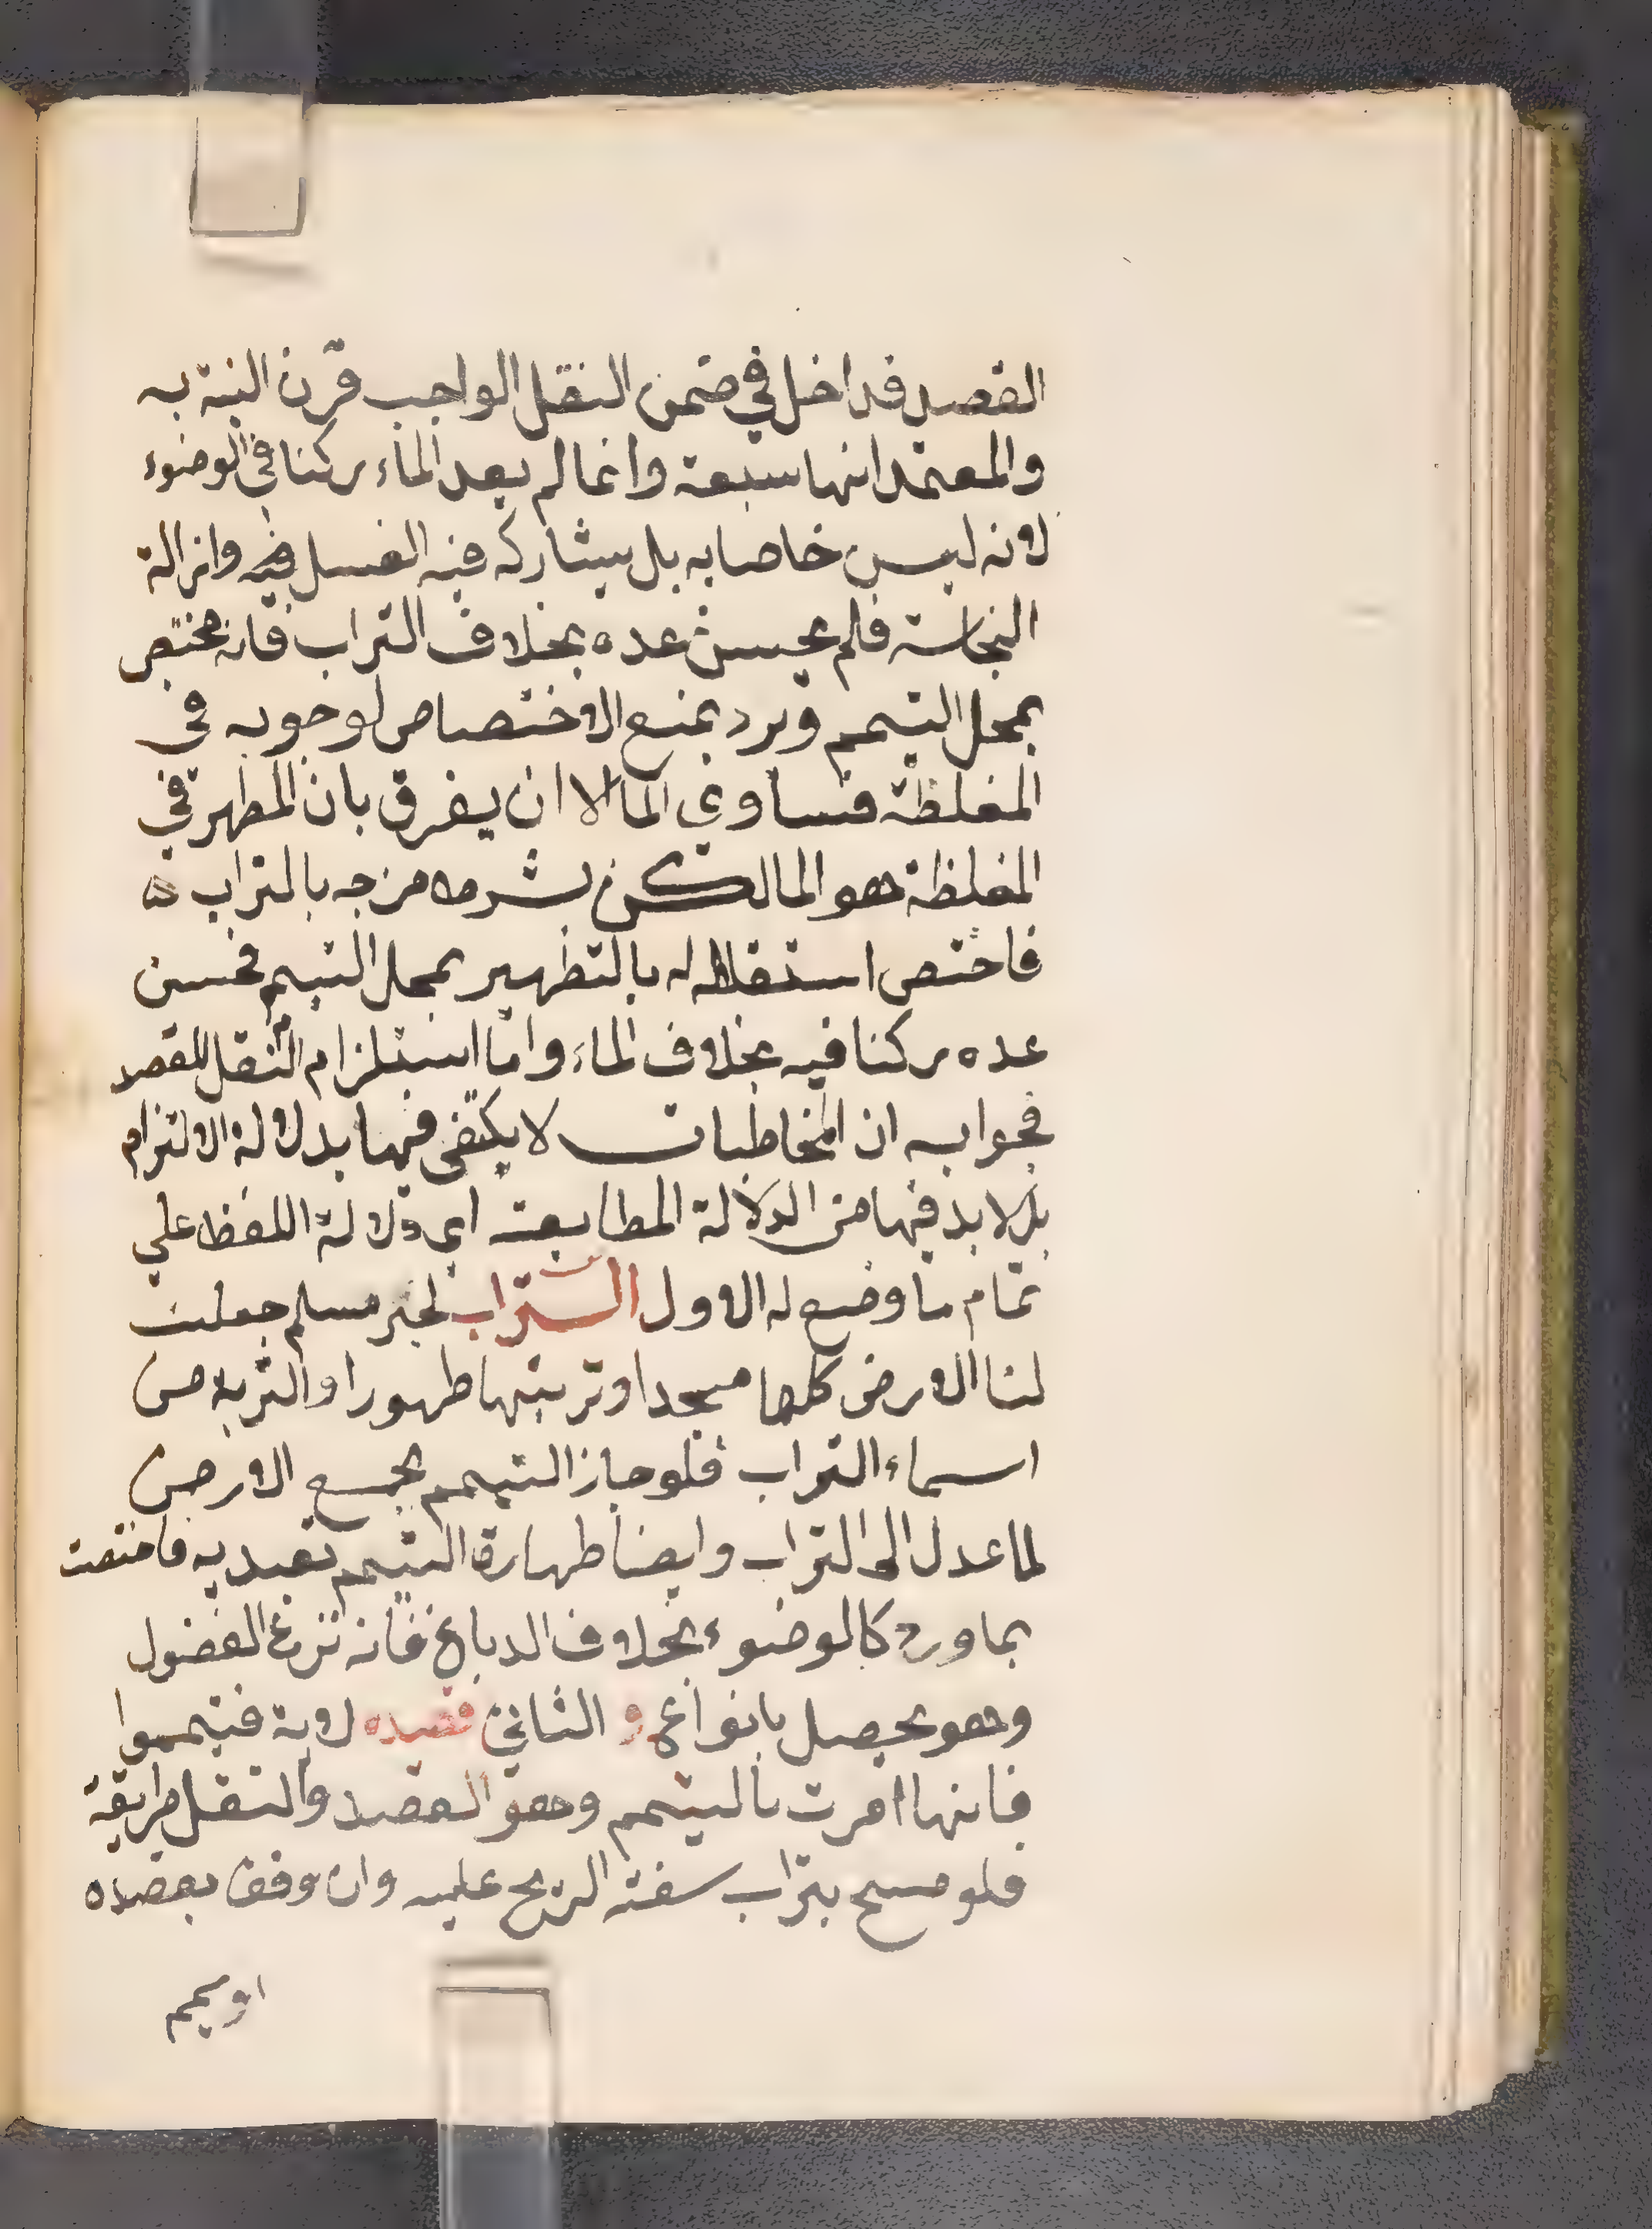 القصد فداخل في ضمن النقل الواجب قرن النية به
والمعتمد انها سبعة وانما لم يعد الماء ركنا في الوضوء
لانه ليس خاصا به بل يشاركه فيه الغسل فيه وازالة
النجاسة فلم يحسن عده بخلاف التراب فانه مختص
بمحل التيمم ويرد بمنع الاختصاص لوجوبه في
المغلظة فساوي الما الا ان يفرق بان المطهر في
المغلظة هو الما لكن بشرط مزجه بالتراب
فاختص استقلاله بالتطهير بمحل التيمم فحسن
عده ركنا فيه بخلاف الماء واما استلزام النقل للقصد
فجوابه ان المخاطبات لا يكتفى فيها بدلالة الالتزام
بل لا بد فيها من الدلالة المطابعة اي دلالة اللفظ علي
تمام ما وضع له الاول التراب لخبر مسلم جعلت
لنا الارض كلها مسجدا وتربتها طهورا والتربة من
اسماء التراب فلو جاز التيمم بجميع الارض
لما عدل الى التراب وايضا طهارة التيمم تعبديه فاختصت
بما ورد كالوضوء بخلاف الدباغ فانه نزع الفضول
وهو يحصل بانواع و الثاني قصده لاية فتيمموا
فانها امرت بالتيمم وهو القصد والنقل طريقة
فلو مسح بتراب سفته الريح عليه وان وقف بقصده
او يمم